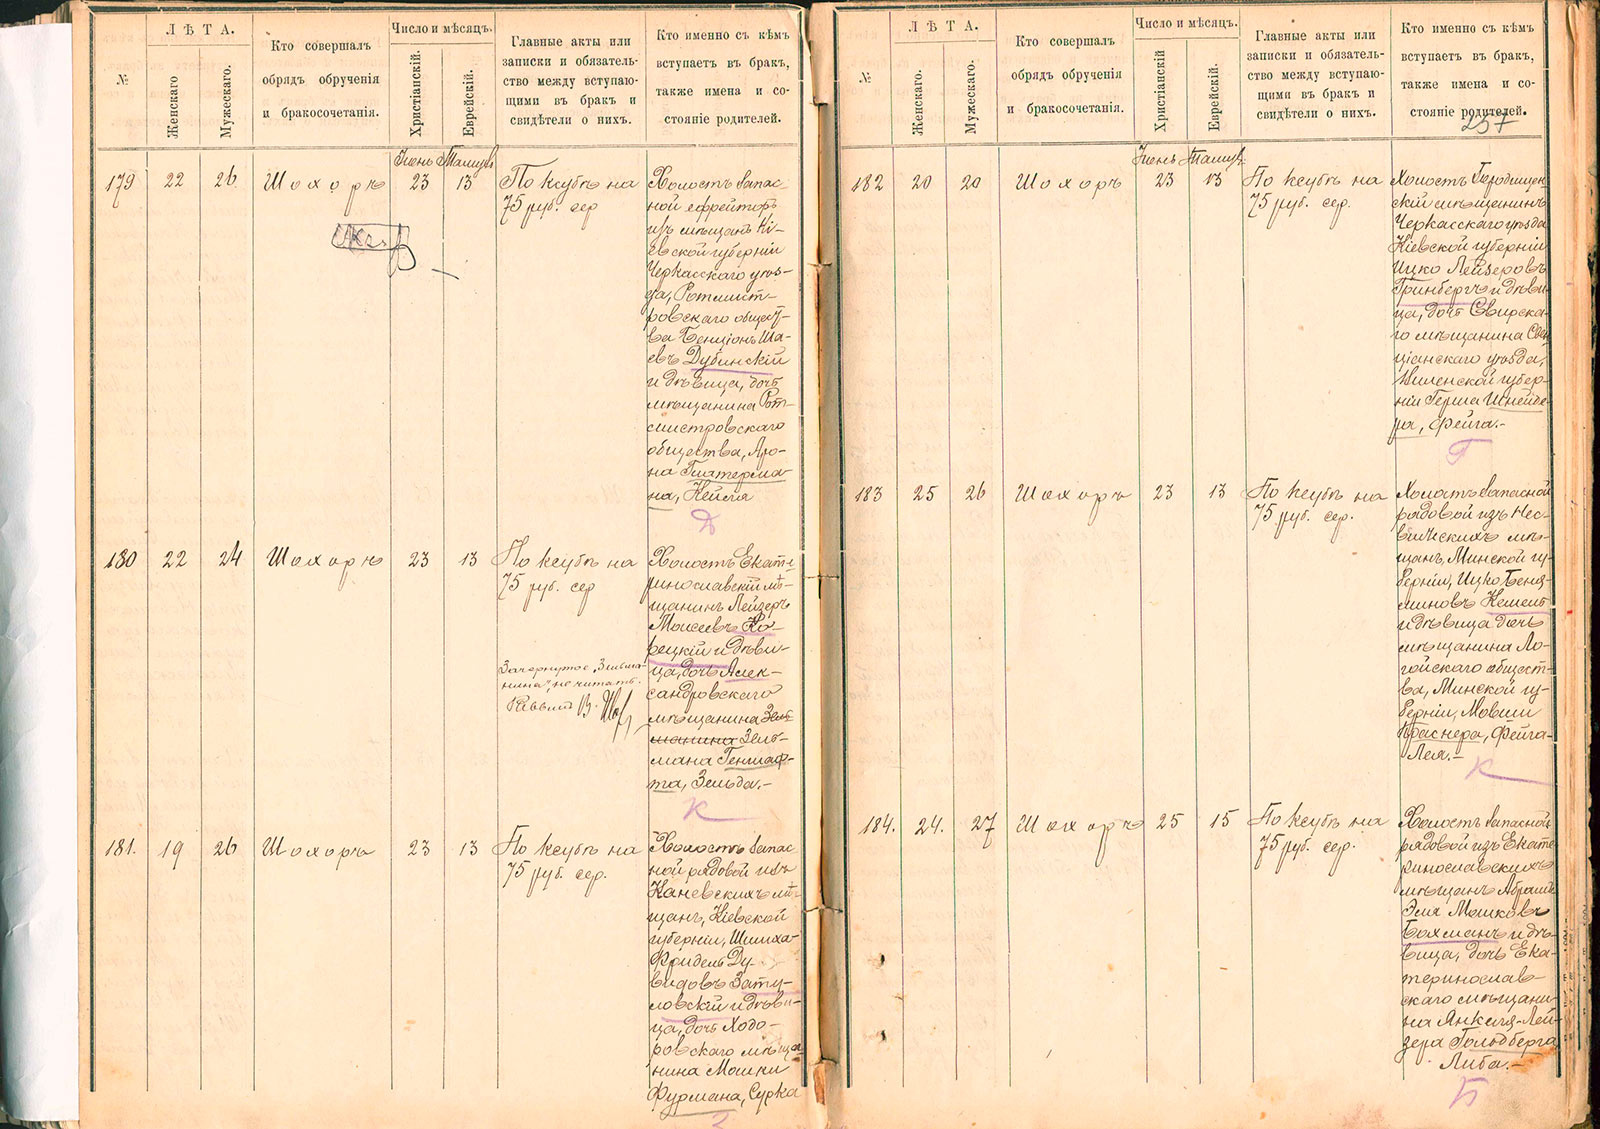 №
ЛѢТА.
Женскаго
Мужескаго.
Кто совершалъ
обрядъ обрученія
и бракосочетанія.
Число и мѣсяцъ.
Христіанскій
Еврейскій.
Главные акты или
записки и обязатель-
ство между вступаю-
щими въ бракъ и
свидѣтели о нихъ.
Кто именно съ кѣмъ
вступаетъ въ бракъ,
также имена и со-
стояніе родителей.
Іюнь Тамузъ
179 22 26 Шохоръ 23 13
По ксубѣ на
75 руб. сер
Холостъ запас-
ной ефрейторъ
изъ мѣщанъ Кі-
евской губерніи
Черкасскаго уѣз-
да, Ротмист-
ровскаго общест-
ва Бенціонъ Ша-
евъ Дубинскій
и дѣвица, дочь
мѣщанина Рот-
мистровскаго
общества, Аро-
на Гматерма-
на, Нейся
Д
180 22 24 Шохоръ 23 13
По ксубѣ на
75 руб. сер
Зачернутое „Зельма-
нина" не читать.
Раввинъ В. Шох
Холостъ Екате-
ринославскій мѣ-
щанинъ Лейзеръ
Моисеевъ Ко-
рецкій и дѣви-
ца, дочь Алек-
сандровскаго
мѣщанина Зель
манина Зель-
мана Геншаф-
та, Зельда.-
К
181. 19 26 Шохоръ 23 13
По ксубѣ на
75 руб. сер.
Холостъ запас
ной рядовой изъ
Каневскихъ мѣ-
щанъ, Кіевской
губерніи, Шимха-
Фридель Ду-
видовъ Зату-
ловскій и дѣви-
ца, дочь Ходо-
ровскаго мѣща
нина Мошки
Фурмана, Сурка
З
№
ЛѢТА.
Женскаго.
Мужескаго.
Кто совершалъ
обрядъ обрученія
и бракосочетанія.
Число и мѣсяцъ.
Христіанскій
Еврейскій.
Главные акты или
записки и обязатель-
ство между вступаю-
щими въ бракъ и
свидѣтели о нихъ.
Кто именно съ кѣмъ
вступаетъ въ бракъ,
также имена и со-
стояніе родителей.
257
Іюнь Тамузъ
182 20 20 Шохоръ 23 13
По ксубѣ на
75 руб. сер.
Холостъ Городищен-
скій мѣщанинъ
Черкасскаго уѣзда
Кіевской губерніи
Ицко Лейзеровъ
Гринбергъ и дѣви
ца, дочь Свирска-
го мѣщанина Свен
ціанскаго уѣзда,
Виленской губер-
ніи Герша Шнейде-
ра, Фейга.-
Г
183 25 26 Шохоръ 23 13
По ксубѣ на
75 руб. сер.
Холостъ запасной
рядовой изъ Нес-
вижскихъ мѣ-
щанъ, Минской гу-
берніи, Ицко Беня-
миновъ Кемель
и дѣвица дочь
мѣщанина Ло-
гойскаго общест-
ва, Минской гу-
берніи, Мовши
Праснера, Фейга-
Лея.-
К
184. 24. 27 Шохоръ 25 15
По ксубѣ на
75 руб. сер.
Холостъ запасной
рядовой изъ Екате
ринославскихъ
мѣщанъ Абрамъ
Эля Мошковъ
Бохманъ и дѣ-
вица, дочь Ека-
теринослав-
скаго мѣщани-
на Янкеля-Лей-
зера Гольдберга
Либа.-
Б